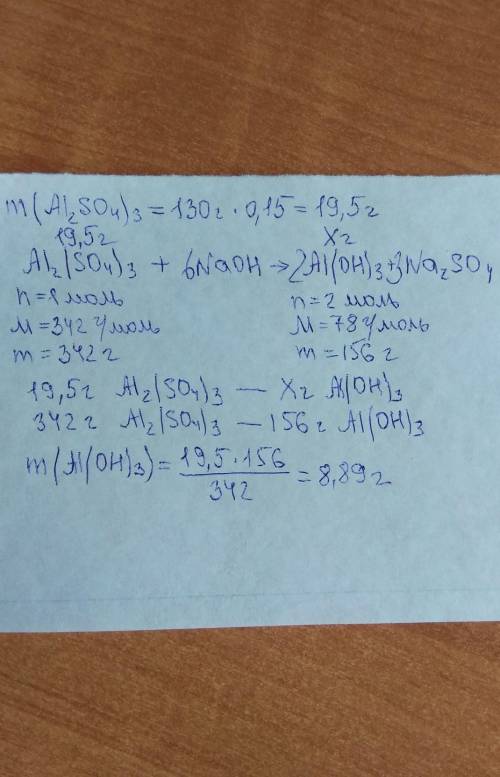 m(Al₂SO₄)₃ = 130г · 0,15 = 19,5г
19,5г Xг
Al₂(SO₄)₃ + 6NaOH → 2Al(OH)₃ + 3Na₂SO₄
n = 1 моль n = 2 моль
M = 342 г/моль M = 78 г/моль
m = 342 г m = 156 г
19,5г Al₂(SO₄)₃ — Xг Al(OH)₃
342 г Al₂(SO₄)₃ — 156 г Al(OH)₃
m(Al(OH)₃) = 19,5 · 156 / 342 = 8,89 г